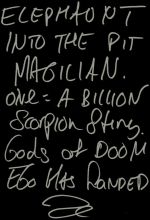 ELEPHANT
INTO THE PIT
MAGICIAN.
ONE = A BILLION
Scorpion Sting.
Gods of DOOM
EGO HAS